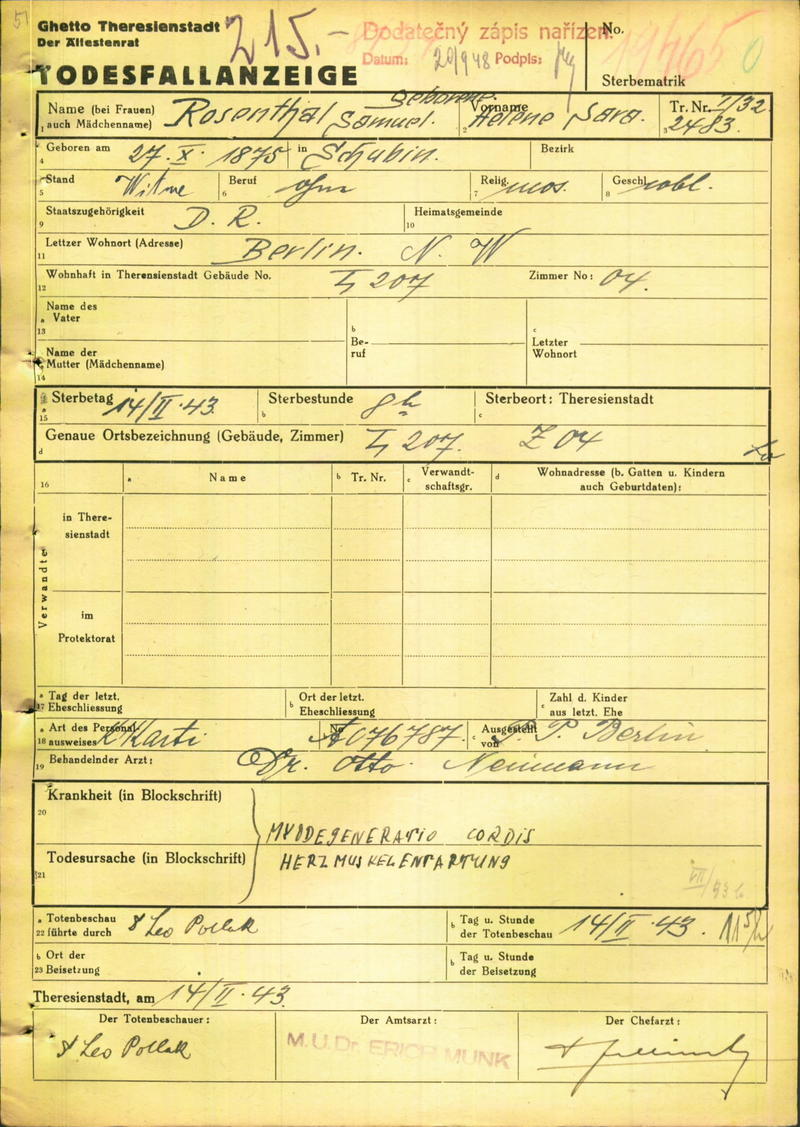 Ghetto Theresienstadt 215.- Dodatečný zápis nařízen. No.
Der Ältestenrat Datum: 20/9 48 Podpis:
TODESFALLANZEIGE Sterbematrik
geborene
Name (bei Frauen) Rosenthal Vorname Tr. Nr. I/32
1 auch Mädchenname) Samuel. 2 Helene Sara. 3 2483.
4 Geboren am 27. X. 1875 in Schubin. Bezirk
5 Stand Witwe 6 Beruf ohne 7 Relig. mos. 8 Geschl. weibl.
9 Staatszugehörigkeit D. R. 10 Heimatsgemeinde
11 Lettzer Wohnort (Adresse) Berlin. N. W
12 Wohnhaft in Therensienstadt Gebäude No. L 207 Zimmer No: 04.
13 a Name des Vater b Beruf c Letzter Wohnort
14 Name der Mutter (Mädchenname)
15 a Sterbetag 14/II. 43. b Sterbestunde 8 h c Sterbeort: Theresienstadt
d Genaue Ortsbezeichnung (Gebäude, Zimmer) L 207. Z 04
16 a Name b Tr. Nr. c Verwandt-schaftsgr. d Wohnadresse (b. Gatten u. Kindern auch Geburtdaten):
Verwandte
in There-
sienstadt
im
Protektorat
17 a Tag der letzt. Eheschliessung b Ort der letzt. Eheschliessung c Zahl d. Kinder aus letzt. Ehe
18 a Art des Personal-ausweises KKarti b No A076787. c Ausgestellt von P. P. Berlin
19 Behandelnder Arzt: Dr. Otto Neumann
20 Krankheit (in Blockschrift)
MYODEGENERATIO CORDIS
21 Todesursache (in Blockschrift) HERZMUSKELENTARTUNG
22 a Totenbeschau führte durch Leo Pollak b Tag u. Stunde der Totenbeschau 14/II. 43.
23 b Ort der Beisetzung b Tag u. Stunde der Beisetzung
Theresienstadt, am 14/II. 43.
Der Totenbeschauer: Der Amtsarzt: Der Chefarzt:
Leo Pollak M.U.Dr. ERICH MUNK